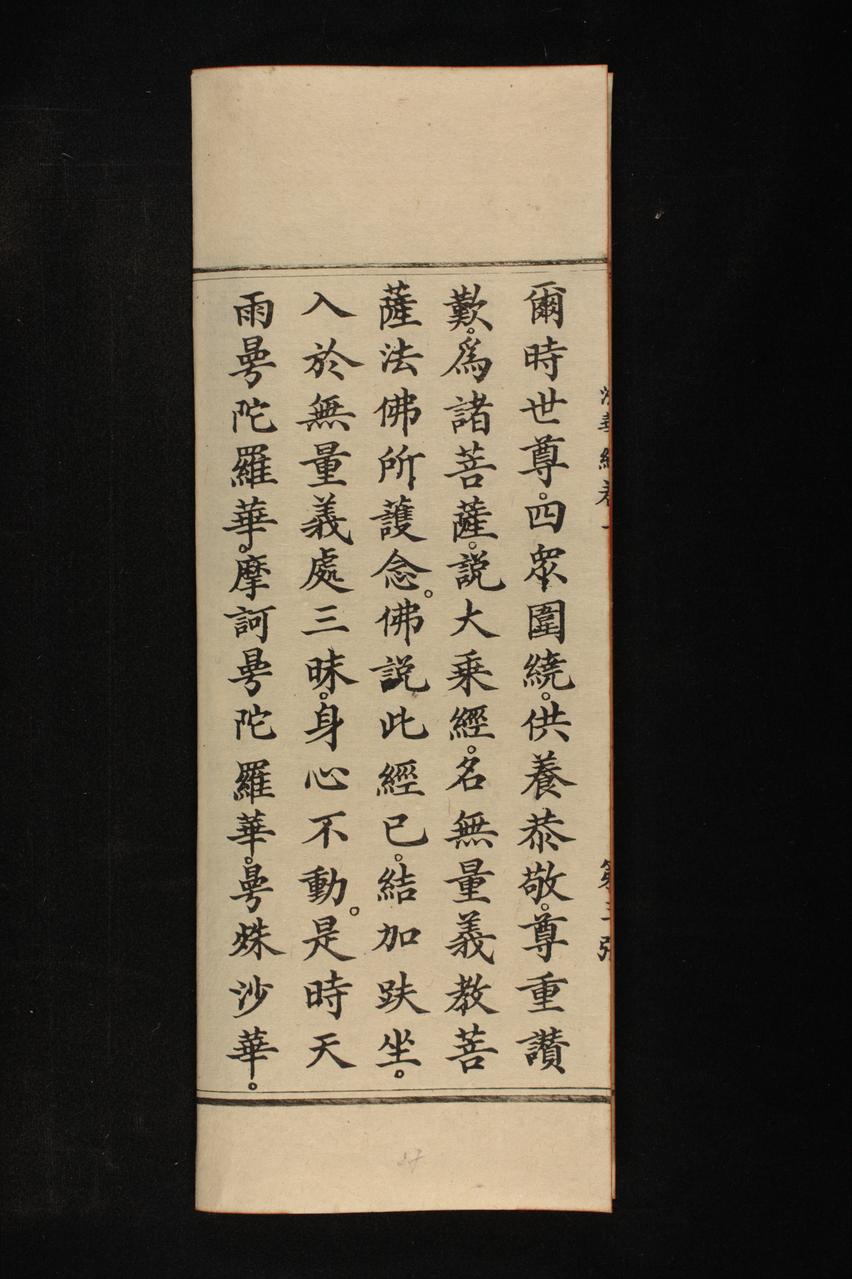 法華經卷一 第三張
爾時世尊。四眾圍繞。供養恭敬。尊重讚
歎。為諸菩薩。說大乘經。名無量義教菩
薩法佛所護念。佛說此經已。結加趺坐。
入於無量義處三昧。身心不動。是時天
雨曼陀羅華。摩訶曼陀羅華。曼殊沙華。